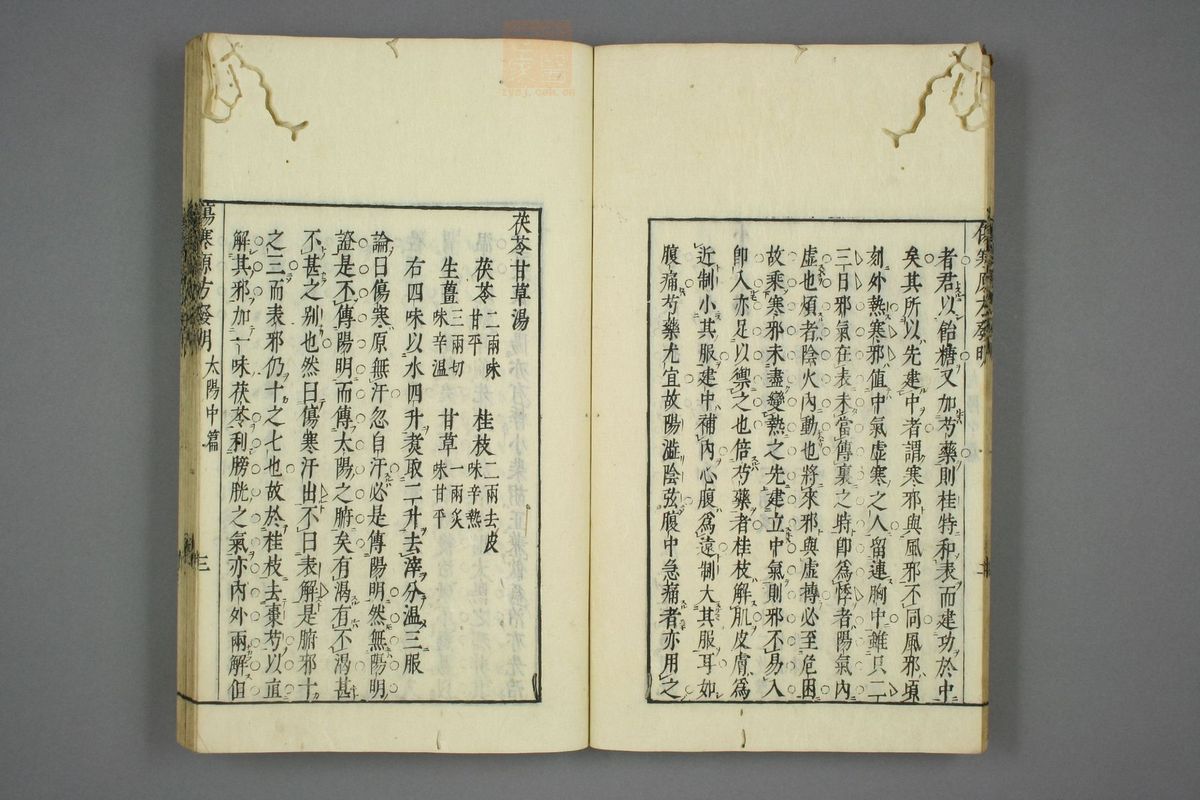 者君以飴糖又加芍藥則桂特和表而建功於中
矣其所以先建中者謂寒邪與風邪不同風邪頃
刻外熱寒邪值中氣虛寒之人留連胸中雖只二
三日邪氣在表未當傳裏之時卽為悸者陽氣內
虛也煩者陰火內動也將來邪與虛搏必至危困
故乘寒邪未盡變熱之先建立中氣則邪不易入
卽入亦足以禦之也倍芍藥者桂枝解肌皮膚為
近制小其服建中補內心腹為遠制大其服耳如
腹痛芍藥尤宜故陽澁陰弦腹中急痛者亦用之
茯苓甘草湯
茯苓二兩味甘平 桂枝二兩去皮味辛熱
生薑三兩切味辛溫 甘草一兩炙味甘平
右四味以水四升煑取二升去滓分溫三服
論曰傷寒原無汗忽自汗必是傳陽明然無陽明
證是不傳陽明而傳太陽之腑矣有渴有不渴甚
不甚之別也然曰傷寒汗出不曰表解是腑邪十
之三而表邪仍十之七也故於桂枝去棗芍以宣
解其邪加一味茯苓利膀胱之氣亦內外兩解但
傷寒原方發明 太陽中篇